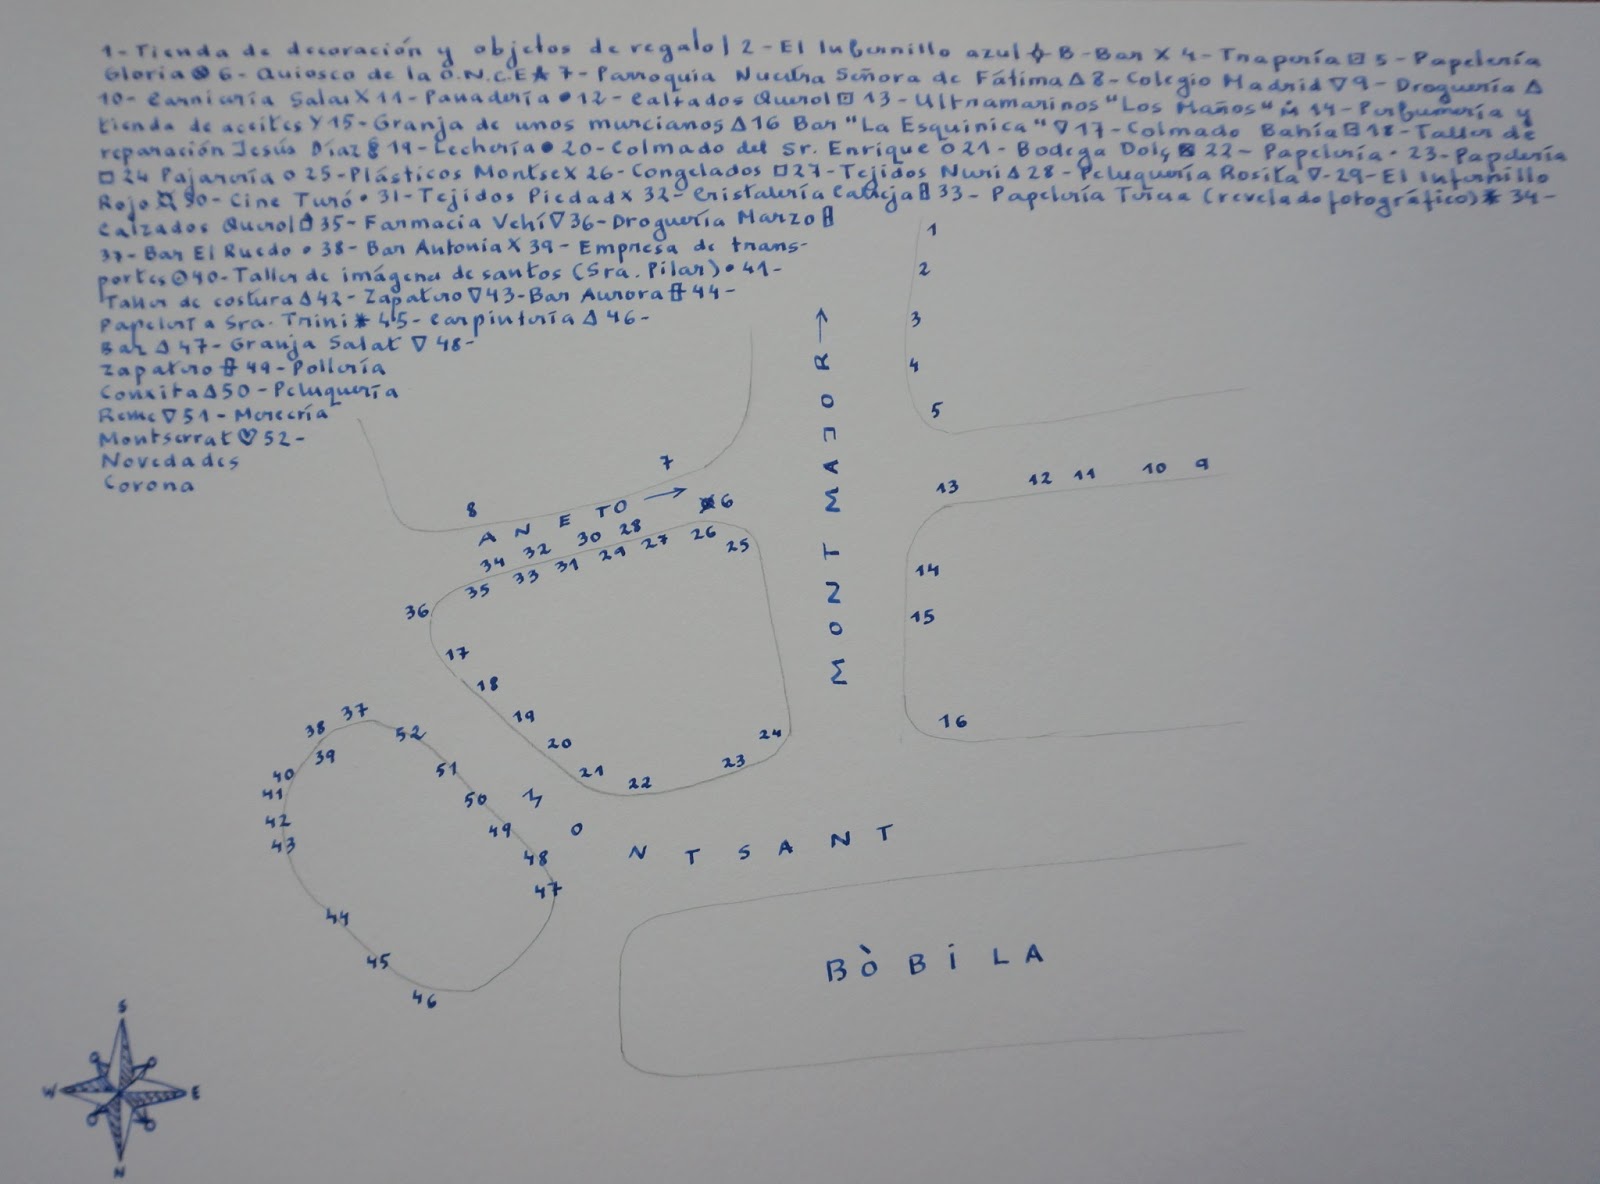 1- Tienda de decoración y objetos de regalo | 2 - El Infernillo azul B - Bar X 4 - Trapería 5 - Papelería
Gloria 6 - Quiosco de la O.N.C.E 7 - Parroquia Nuestra Señora de Fátima Δ 8 - Colegio Madrid ▽ 9 - Droguería Δ
10 - Carnicería Salas X 11 - Panadería • 12 - Calzados Querol 13 - Ultramarinos "Los Maños" 14 - Perfumería y
tienda de aceites Y 15 - Granja de unos murcianos Δ 16 Bar "La Esquinica" ▽ 17 - Colmado Bahía 18 - Taller de
reparación Jesús Díaz 19 - Lechería • 20 - Colmado del Sr. Enrique o 21 - Bodega Dolç 22 - Papelería • 23 - Papelería
□ 24 Pajarería o 25 - Plásticos Montse X 26 - Congelados □ 27 - Tejidos Nuri Δ 28 - Peluquería Rosita ▽ - 29 - El Infernillo
Rojo 30 - Cine Turó • 31 - Tejidos Piedad X 32 - Cristalería 33 - Papelería (revelado fotográfico) 34 -
Calzados Querol 35 - Farmacia Vehí ▽ 36 - Droguería Marzo
37 - Bar El Ruedo • 38 - Bar Antonia X 39 - Empresa de trans-
portes 40 - Taller de imágenes de santos (Sra. Pilar) • 41 -
Taller de costura Δ 42 - Zapatero ▽ 43 - Bar Aurora 44 -
Papelería Sra. Trini 45 - Carpintería Δ 46 -
Bar Δ 47 - Granja Salat ▽ 48 -
Zapatero 49 - Pollería
Conxita Δ 50 - Peluquería
Reme ▽ 51 - Mercería
Montserrat ♡ 52 -
Novedades
Corona
1
2
3
4
5
MONT MAJOR →
7
8
ANETO →
6
13 12 11 10 9
34 32 30 28
35 33 31 29 27 26 25
36
14
15
16
17
18
19
20
21
22
23
24
37
38
39
40
41
42
43
44
45
46
52
51
50
49
48
47
MONTSANT
BÒBILA
S
W E
N